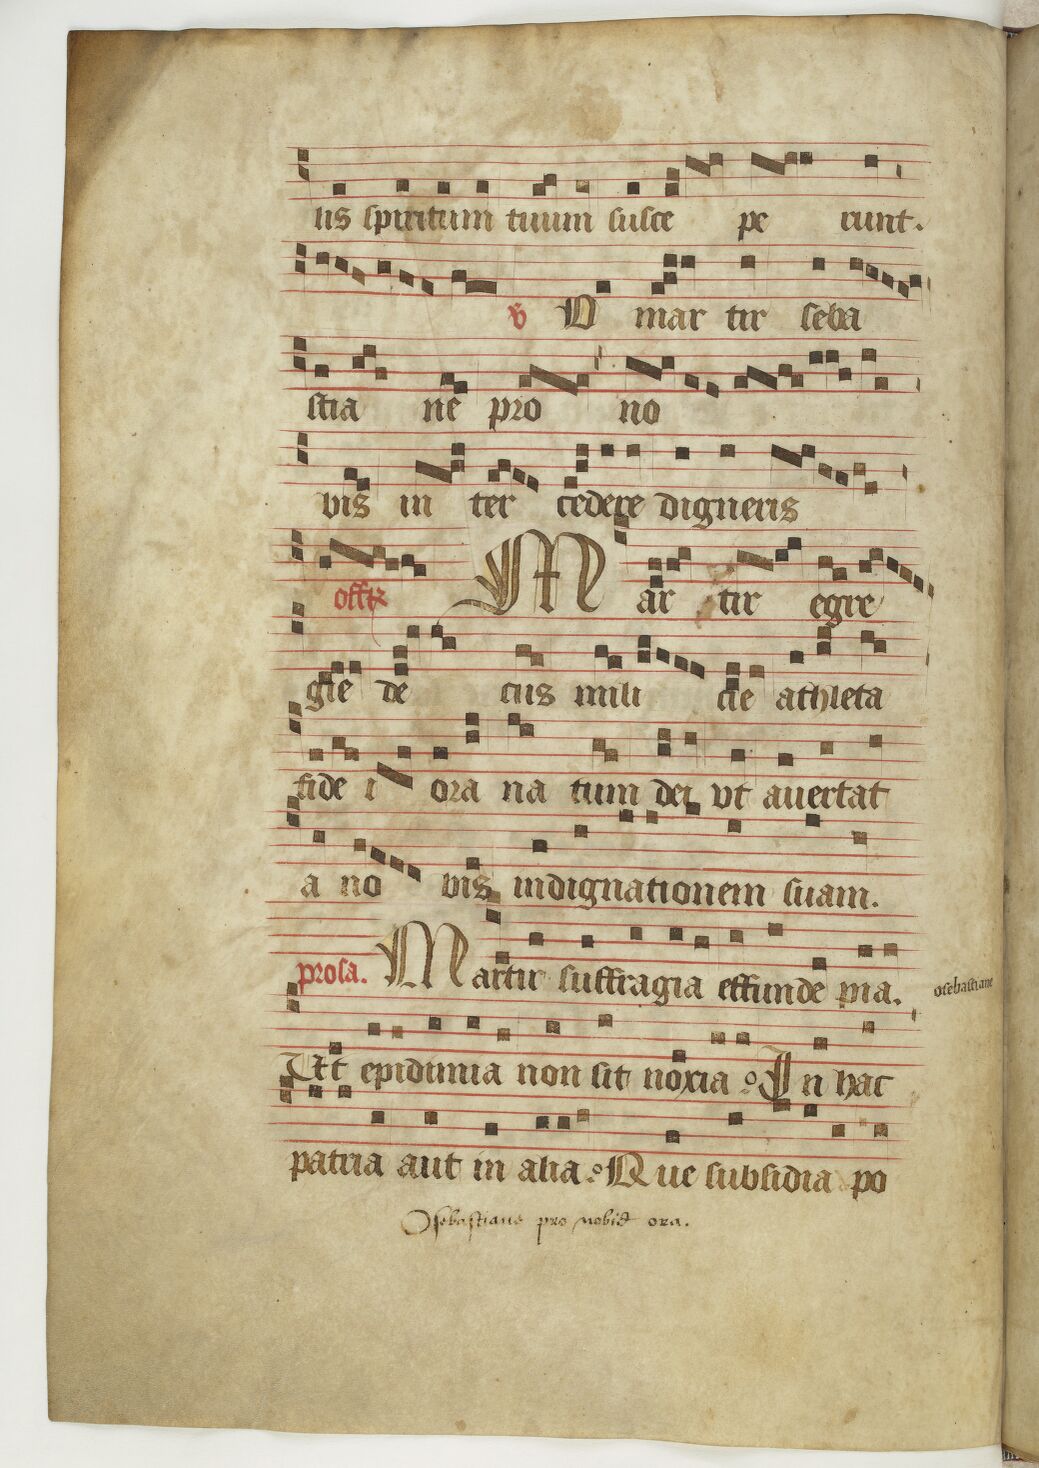 lis spiritum tuum susce pe runt.
v̄ O mar tir seba
stia ne pro no
vis in ter cedere digneris
offr̄ Mar tir egre
gie de cus mili cie athleta
fide i ora na tum dei vt auertat
a no vis indignationem suam.
prosa. Martir suffragia effunde pia.
osebastiane
Et epidimia non sit noxia In hac
patria aut in alia Que subsidia po
O sebastiane pro nobis ora.